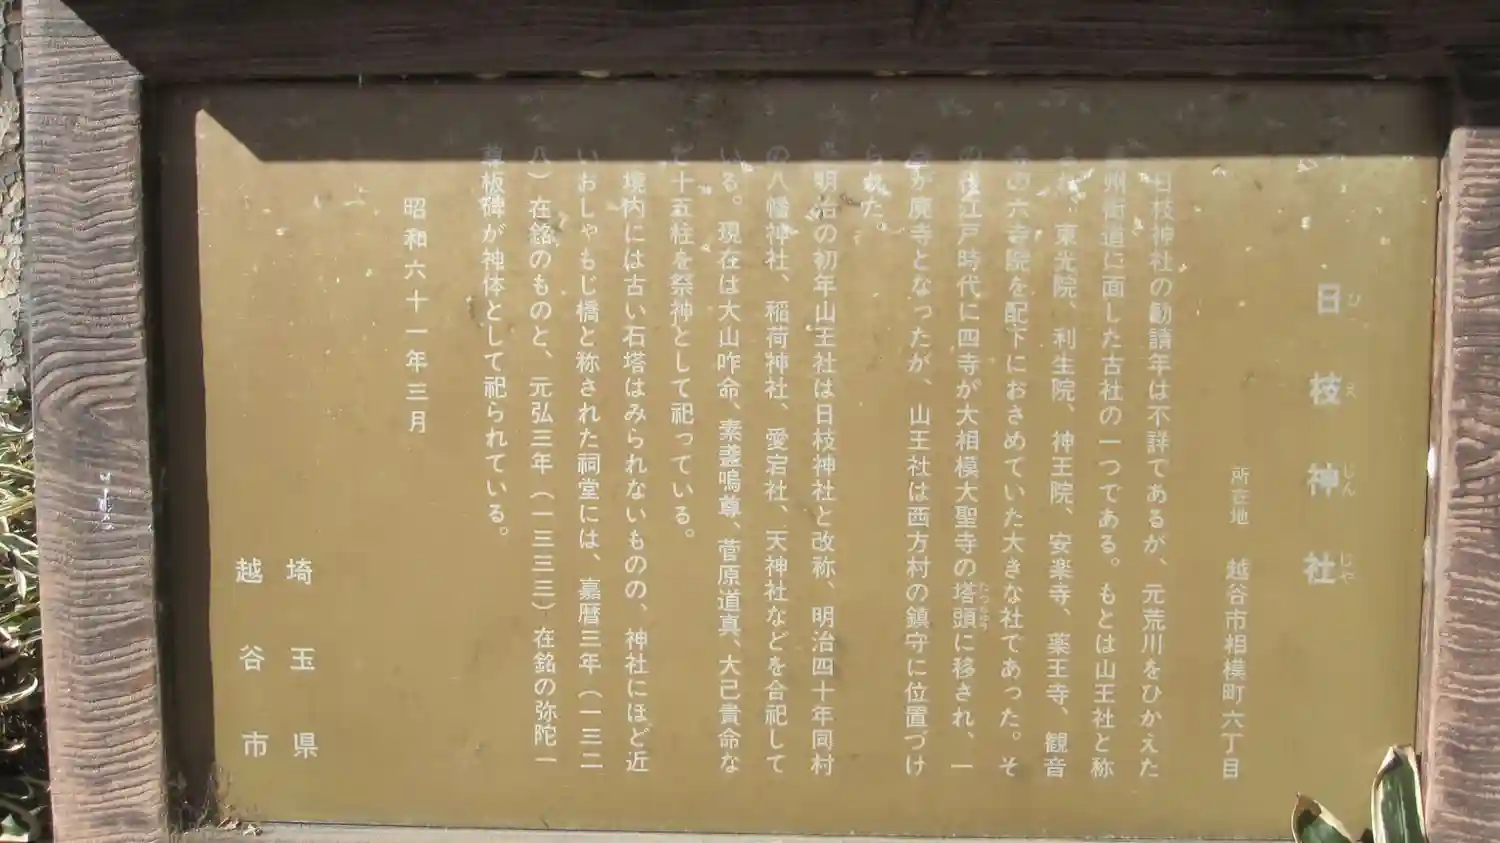 日枝神社
ひえじんじや
所在地 越谷市相模町六丁目
日枝神社の勧請年は不詳であるが、元荒川をひかえた
州街道に面した古社の一つである。もとは山王社と称
東光院、利生院、神王院、安楽寺、薬王寺、観音
の六寺院を配下におさめていた大きな社であった。そ
の後江戸時代に四寺が大相模大聖寺の塔頭に移され、一
たっちゅう
が廃寺となったが、山王社は西方村の鎮守に位置づけ
られた。
明治の初年山王社は日枝神社と改称、明治四十年同村
の八幡神社、稲荷神社、愛宕社、天神社などを合祀して
いる。現在は大山咋命、素盞嗚尊、菅原道真、大己貴命な
ど十五柱を祭神として祀っている。
境内には古い石塔はみられないものの、神社にほど近
いおしゃもじ橋と称された祠堂には、嘉暦三年（一三二
八）在銘のものと、元弘三年（一三三三）在銘の弥陀一
尊板碑が神体として祀られている。
昭和六十一年三月
埼玉県
越谷市